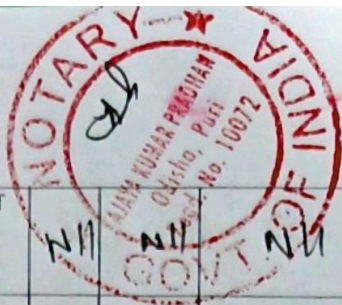 NOTARY
GOVT OF INDIA
AJAYA KUMAR PRADHAN
Odisha, Puri
No. 10072
Nil Nil Nil